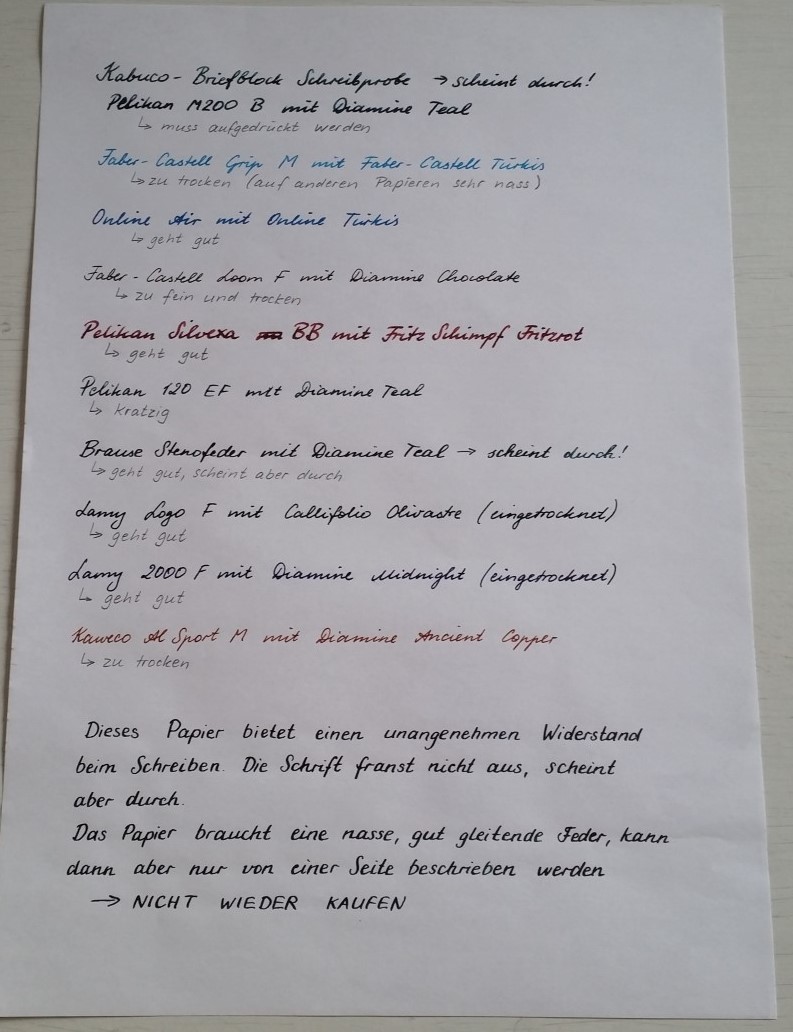 Kabuco - Briefblock Schreibprobe → scheint durch!
Pelikan M200 B mit Diamine Teal
↳ muss aufgedrückt werden
Faber-Castell Grip M mit Faber-Castell Türkis
↳ zu trocken (auf anderen Papieren sehr nass)
Online Air mit Online Türkis
↳ geht gut
Faber-Castell Loom F mit Diamine Chocolate
↳ zu fein und trocken
Pelikan Silvexa BB mit Fritz Schimpf Fritzrot
↳ geht gut
Pelikan 120 EF mit Diamine Teal
↳ kratzig
Brause Stenofeder mit Diamine Teal → scheint durch!
↳ geht gut, scheint aber durch
Lamy Logo F mit Callifolio Olivastre (eingetrocknet)
↳ geht gut
Lamy 2000 F mit Diamine Midnight (eingetrocknet)
↳ geht gut
Kaweco Al Sport M mit Diamine Ancient Copper
↳ zu trocken
Dieses Papier bietet einen unangenehmen Widerstand
beim Schreiben. Die Schrift franst nicht aus, scheint
aber durch.
Das Papier braucht eine nasse, gut gleitende Feder, kann
dann aber nur von einer Seite beschrieben werden
→ NICHT WIEDER KAUFEN